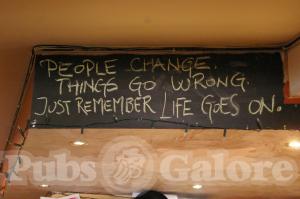 PEOPLE CHANGE.
THINGS GO WRONG.
JUST REMEMBER LIFE GOES ON.
Pubs Galore